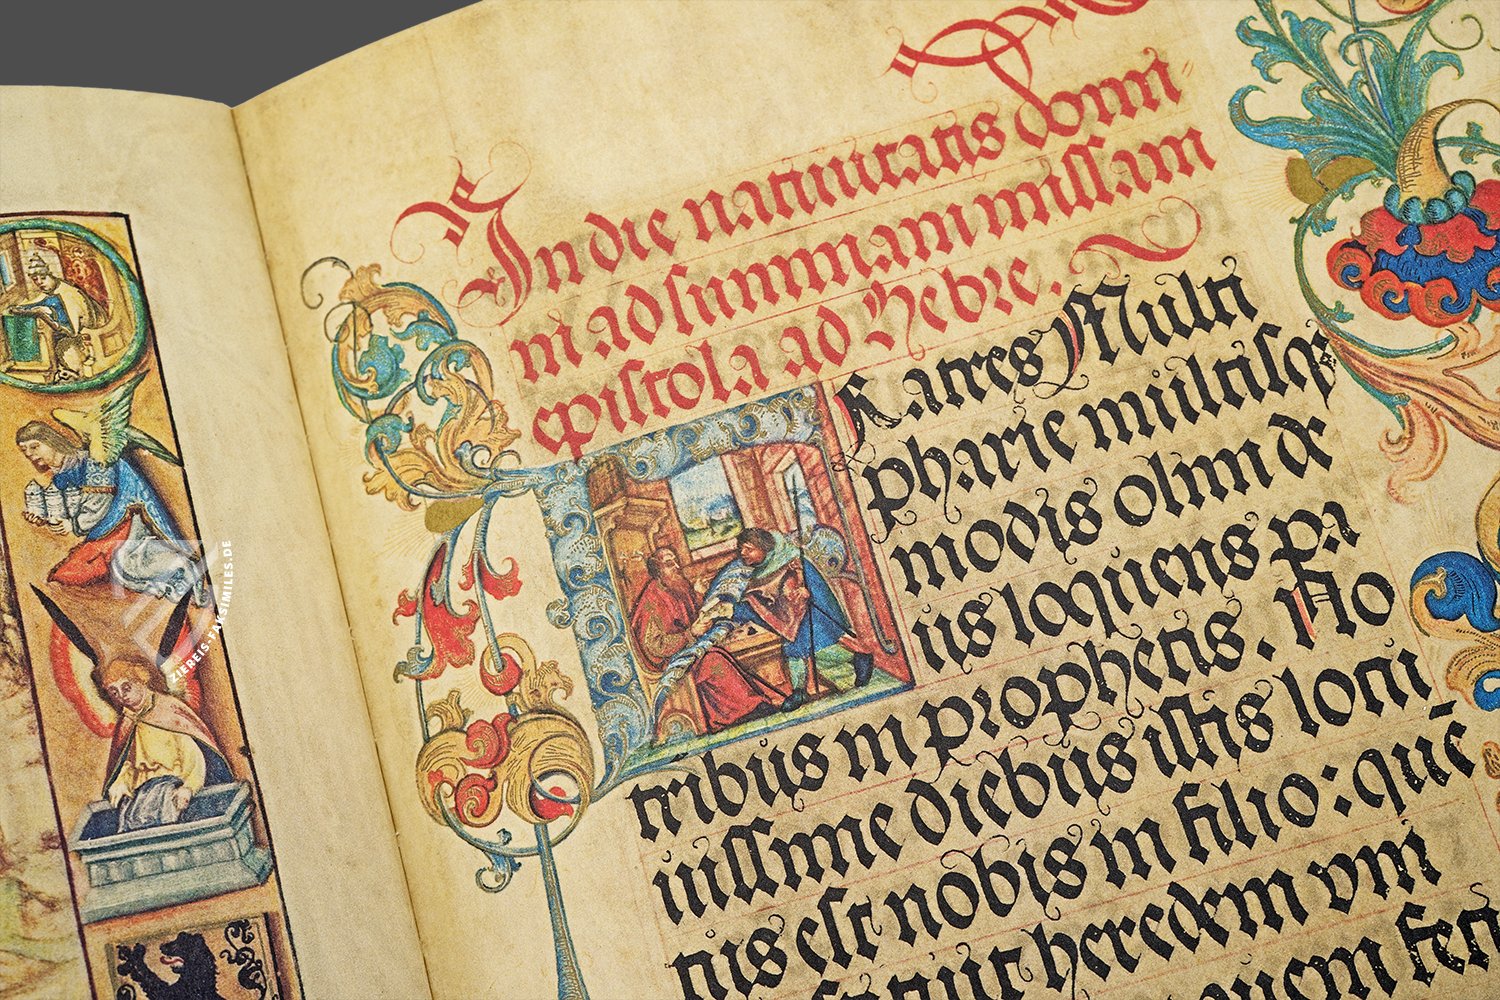 In die natiuitatis domi
ni ad summam missam
epistola ad Hebre.
Fratres Multi
pharie multisqꝫ
modis olim &
iis loquens pa
tribus in prophetis. No
uissime diebus istis locu
tus est nobis in filio: quē
uni
heredem
ZIEREIS-FAKSIMILES.DE